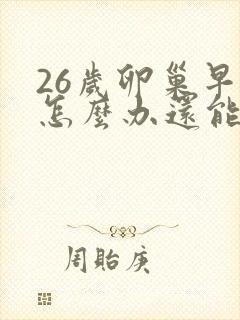 26歲卵巢早
怎麼办還能
周貽庚